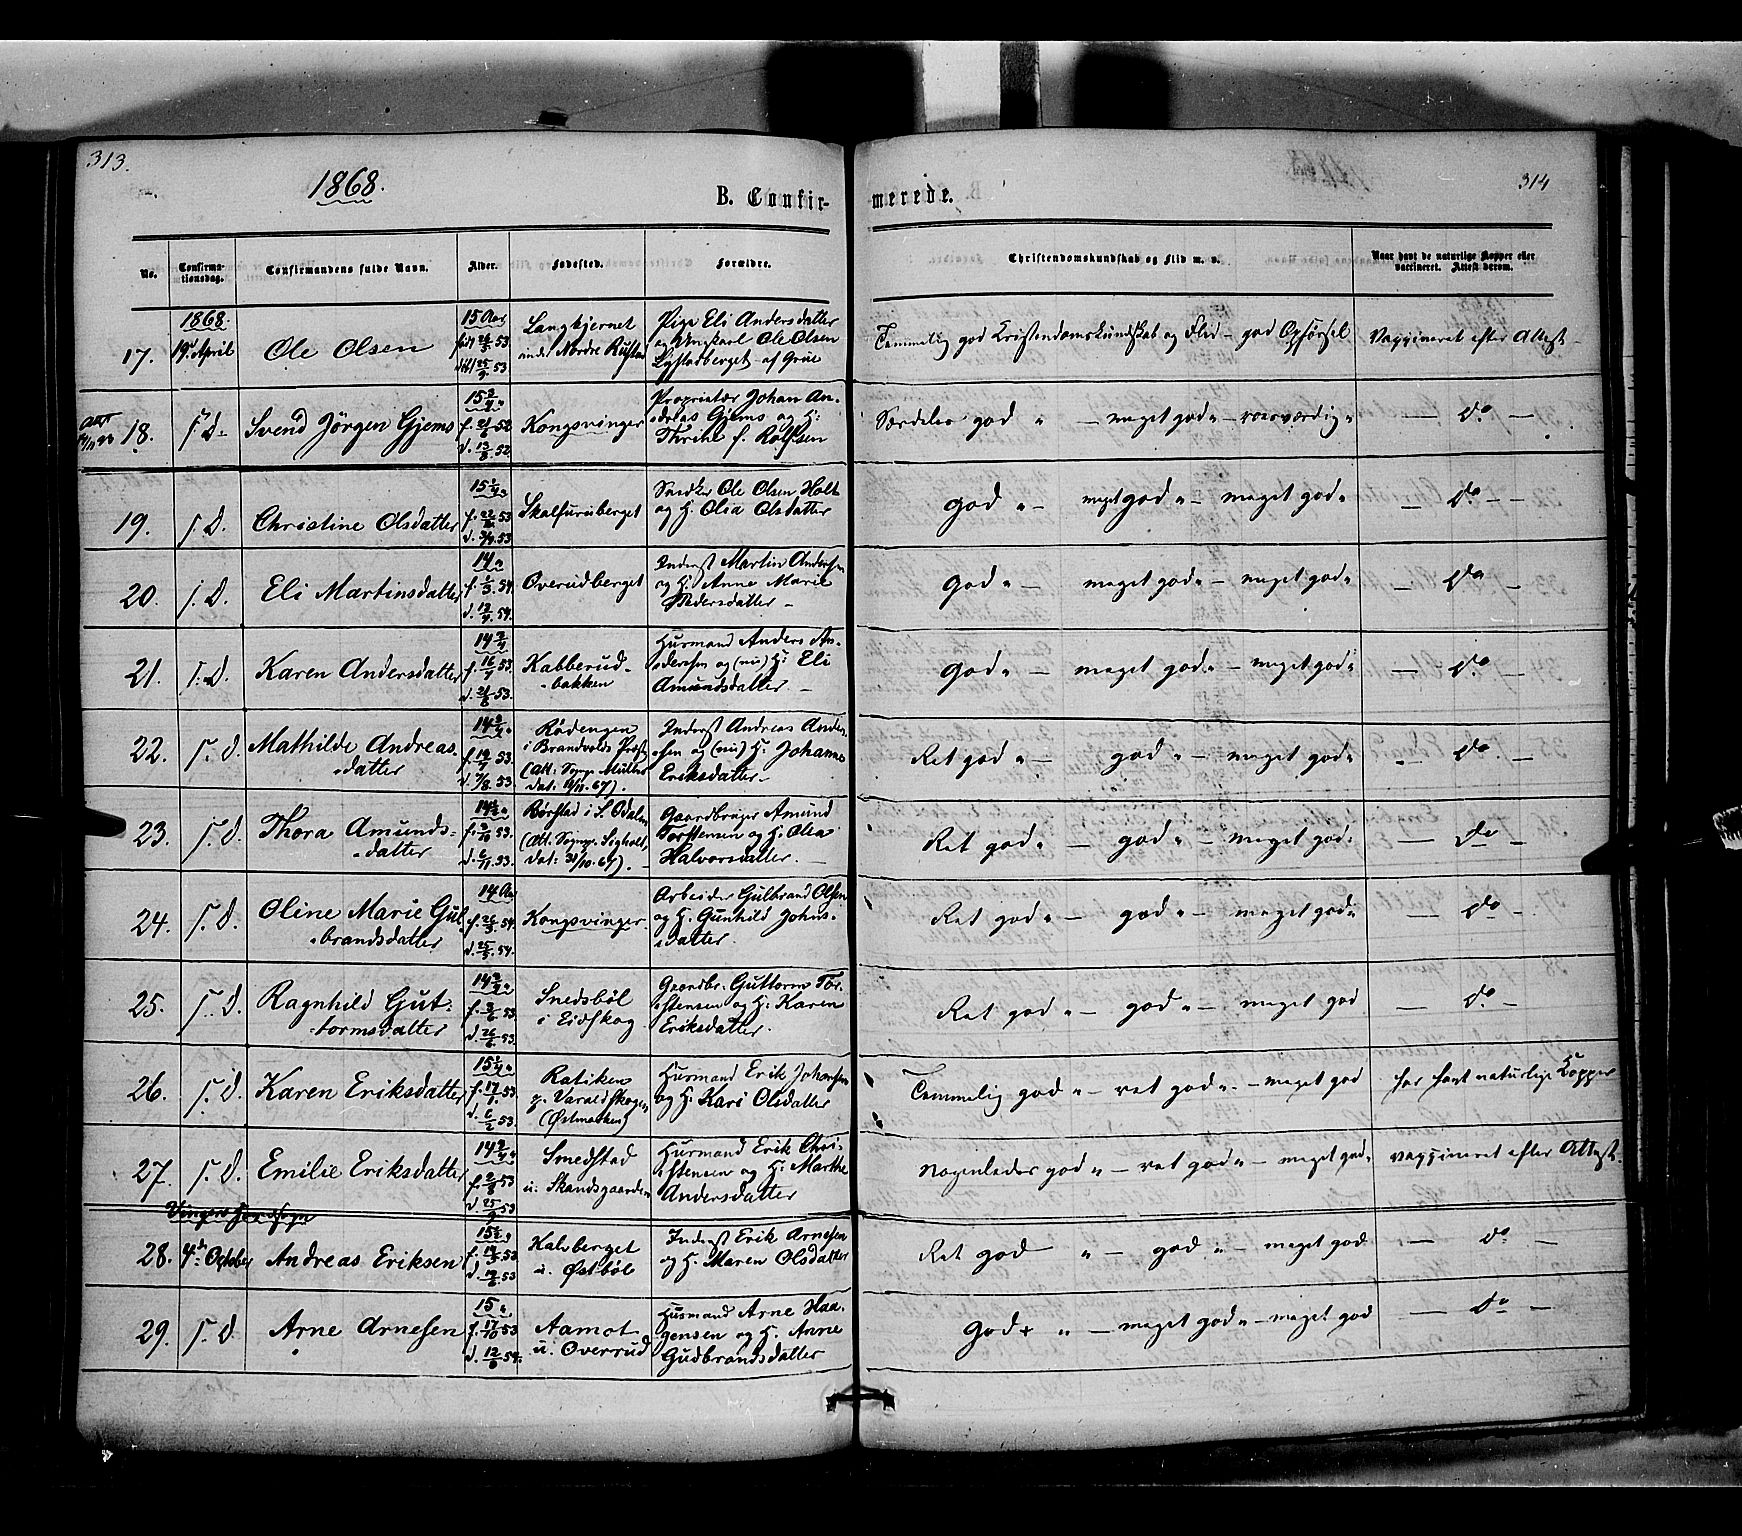 313.
1868.
B. Confir-
merede.
314
No.
Confirma-
tionsdag.
Confirmandens fulde Navn.
Alder.
Fødested.
Forældre.
Christendomskundskab og Flid m. v.
Naar havt de naturlige Kopper eller
vaccineret. Attest derom.
17.
1868.
19de April
Ole Olsen
15 Aar
53
53
Langkjernet
Pige Eli Andersdatter
og Ungkarl Ole Olsen
af Grue
Temmelig god Kristendomskundskab og Flid – god Opførsel
Vaccineret efter Attest
18.
T. D.
Svend Jörgen Gjems
15 3/4 "
f. 21/6 52
d. 13/8 52
Kongsvinger
Proprietær Johan An-
dreas Gjems og H:
f. Rolfsen
Særdeles god " – meget god " –
— do —
19.
T. D.
Christine Olsdatter
15 1/4 "
53
d. 53
Skalfuruberget
Ole Olsen Holt
og H. Olia Olsdatter
god " – meget god " – meget god "
— do —
20.
T. D.
Eli Martinsdatter
14 "
54.
d. 12/4 54.
Overudberget
Inderst Martin Andersen
og H. Anne Marie
Pedersdatter –
God " – meget god " – meget god "
— do —
21.
T. D.
Karen Andersdatter
14 3/4
f. 16/7 53.
d. 21/8 53.
Kabberud-
bakken
Husmand Anders An-
dersen og (nu) H: Eli
Amundsdatter. –
God " – meget god " – meget god "
— do —
22.
T. D.
Mathilde Andreas-
datter
14 3/4 "
f. 19/7 53.
d. 7/8 53
Rødengen
i Brandvolds Præst
(Att: Sognepr. Müller
dat: 67).
Inderst Andreas Ander-
sen og (nu) H: Johanne
Eriksdatter –
Ret god " – god " – meget god "
— do —
23.
T. D.
Thora Amunds-
datter
14 1/2 "
53.
d. 6/11 53.
Børstad i S. Odalen
(Att. Sognepr.
dat: 31/10. 67).
Gaardbruger Amund
Torstensen og H. Olea
Halvorsdatter. –
Ret god " – god " – meget god "
— do —
24.
T. D.
Oline Marie Gul-
brandsdatter
14 Aar
54.
d. 25/5 54.
Kongsvinger
Arbeider Gulbrand Olsen
og H. Gunhild Johns-
datter.
Ret god " – god " – meget god "
— do —
25.
T. D.
Ragnhild Gut-
tormsdatter
14 3/4 "
53
d. 26/6 53.
Snedsböl
i Eidskog
Gaardbr. Guttorm Tor-
stensen og H: Karen
Eriksdatter.
Ret god " – god " – meget god
— do —
26.
T. D.
Karen Eriksdatter
15 1/4 "
f. 17/1 53.
d. 6/2 53
Ratiken
p. Varaldskogen
(Østmarken)
Husmand Erik Johansen
og H. Kari Olsdatter
Temmelig god " – ret god " – meget god
har havt naturlige Kopper
27.
T. D.
Emilie Eriksdatter
14 3/4 "
53
d. 25/9 53
Smedstad
u. Skandsgaarden
Husmand Erik Chri-
stensen og H: Marthe
Andersdatter
Nogenledes god " – ret god " – meget god "
vaccineret efter Attest.
Vingers Hovedsogn
28.
4de October
Andreas Eriksen
53
d. 53
Kalvberget
u. Østböl
Inderst Erik Arnesen
og H. Maren Olsdatter
Ret god " – god " – meget god
— do —
29.
T. D
Arne Arnesen
15 "
f. 17/10 53
d. 54.
Aamot
u. Overrud
Husmand Arne Haa-
gensen og H. Anne
Gudbrandsdatter
God+ " – meget god " – meget god
— do —